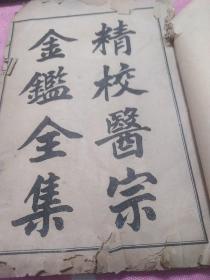 精校醫宗
金鑑全集